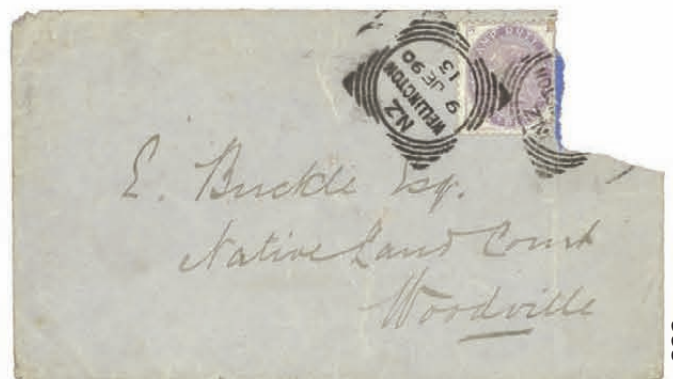 NZ
WELLINGTON
9 JE 90
13
E. Buckle Esq.
Native Land Court
Woodville